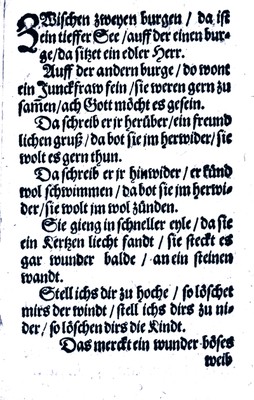 ZWischen zweyen burgen / da ist
ein tieffer See / auff der einen bur-
ge / da sitzet ein edler Herr.
Auff der andern burge / do wont
ein Junckfraw fein / sie weren gern zu
sam̃en / ach Gott möcht es gesein.
Da schreib er jr herüber / ein freund
lichen gruß / da bot sie jm herwider / sie
wolt es gern thun.
Da schreib er jr hinwider / er künd
wol schwimmen / da bot sie jm herwi-
der / sie wolt jm wol zünden.
Sie gieng in schneller eyle / da sie
ein Kertzen liecht fandt / sie steckt es
gar wunder balde / an ein steinen
wandt.
Stell ichs dir zu hoche / so löschet
mirs der windt / stell ichs dirs zu ni-
der / so löschen dirs die Kindt.
Das merckt ein wunder böses
weib